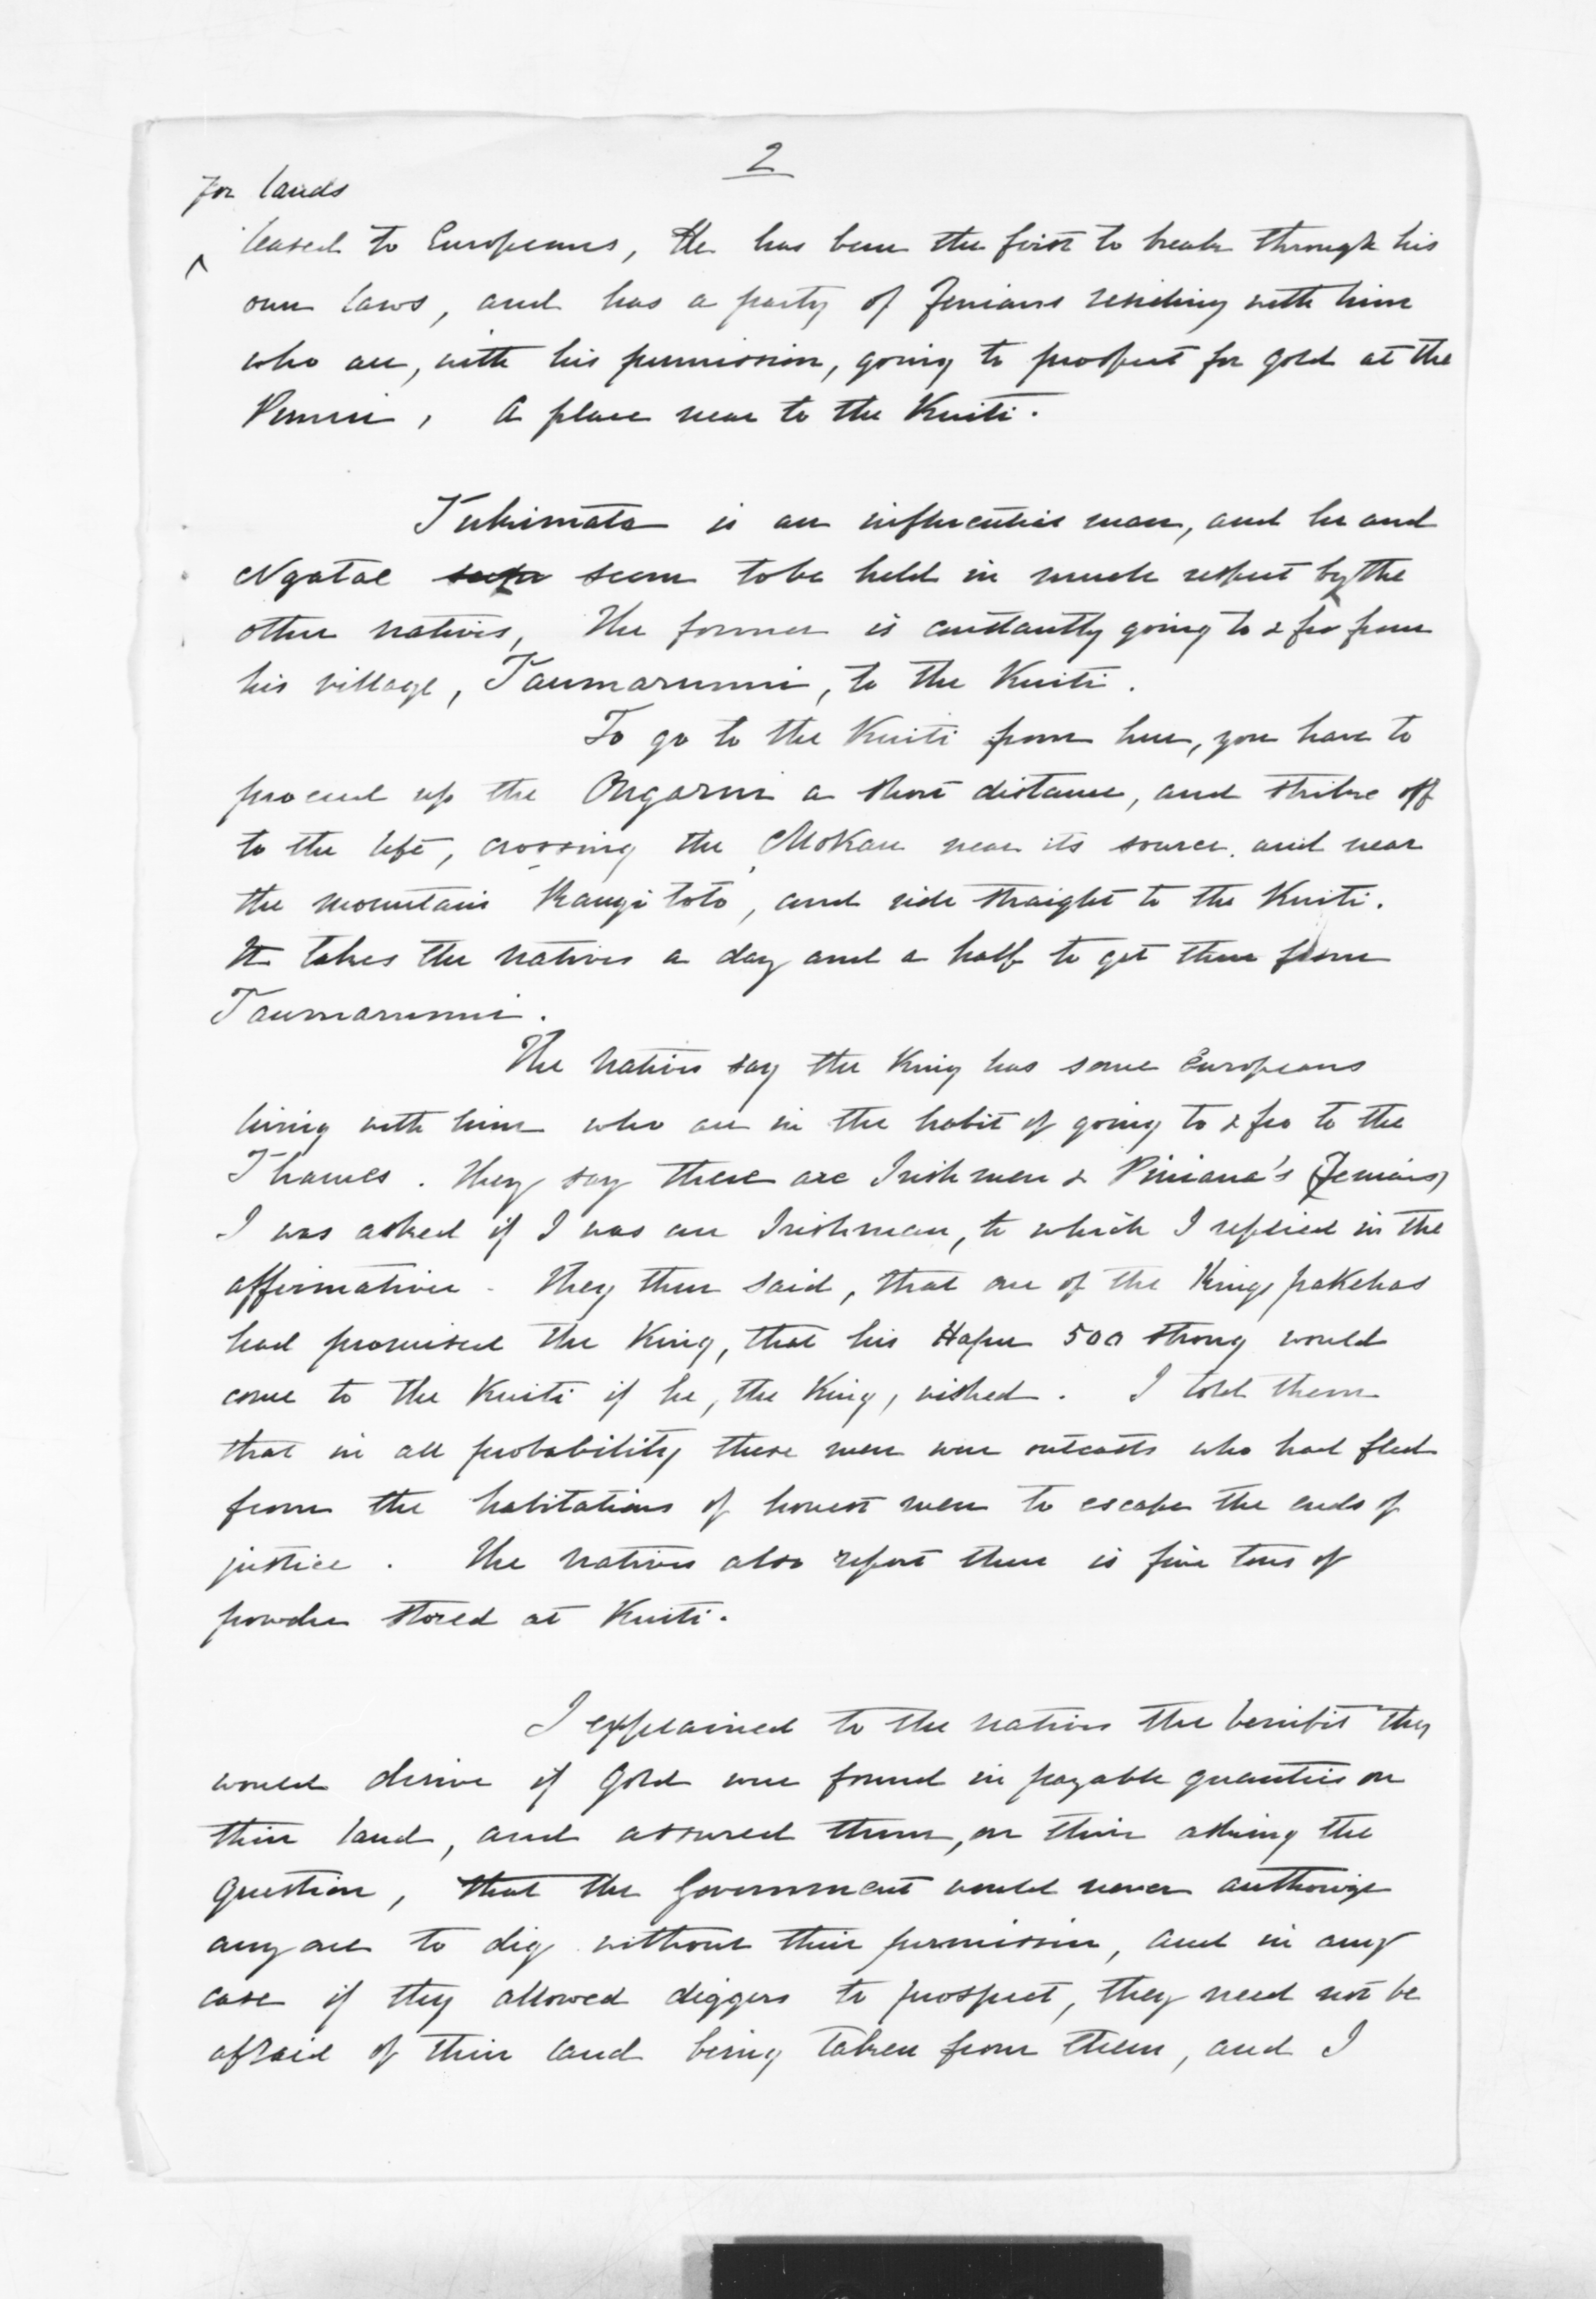 2
for lands
^ leased to Europeans, He has been the first to break through his
own laws, and has a party of Fenians residing with him
who are, with his permission, going to prospect for gold at the
a place near to the Kuiti.
Tukimata is an influential man, and he and
Ngatae seem to be held in much respect by the
other natives, The former is constantly going to & fro from
his village, Taumarunui, to the Kuiti.
To go to the Kuiti from here, you have to
proceed up the Ongarui a short distance, and strike off
to the left, crossing the Mokau near its source, and near
the mountain Rangitoto, and ride straight to the Kuiti.
It takes the natives a day and a half to get there from
Taumarunui.
The natives say the King has some Europeans
living with him who are in the habit of going to & fro to the
Thames. They say these are Irishmen & Piniana's (Fenians)
I was asked if I was an Irishman, to which I replied in the
affirmative. They then said, that one of the Kings pakehas
had promised the King, that his Hapu 500 strong would
come to the Kuiti if he, the King, wished. I told them
that in all probability these men were outcasts who had fled
from the habitations of honest men to escape the ends of
justice. The natives also report there is five tons of
powder stored at Kuiti.
I explained to the natives the benifit they
would derive if gold were found in payable quanties on
their land, and assured them, on their asking the
question, that the Government would never authorize
any one to dig without their permission, and in any
case if they allowed diggers to prospect, they need not be
afraid of their land being taken from them, and I